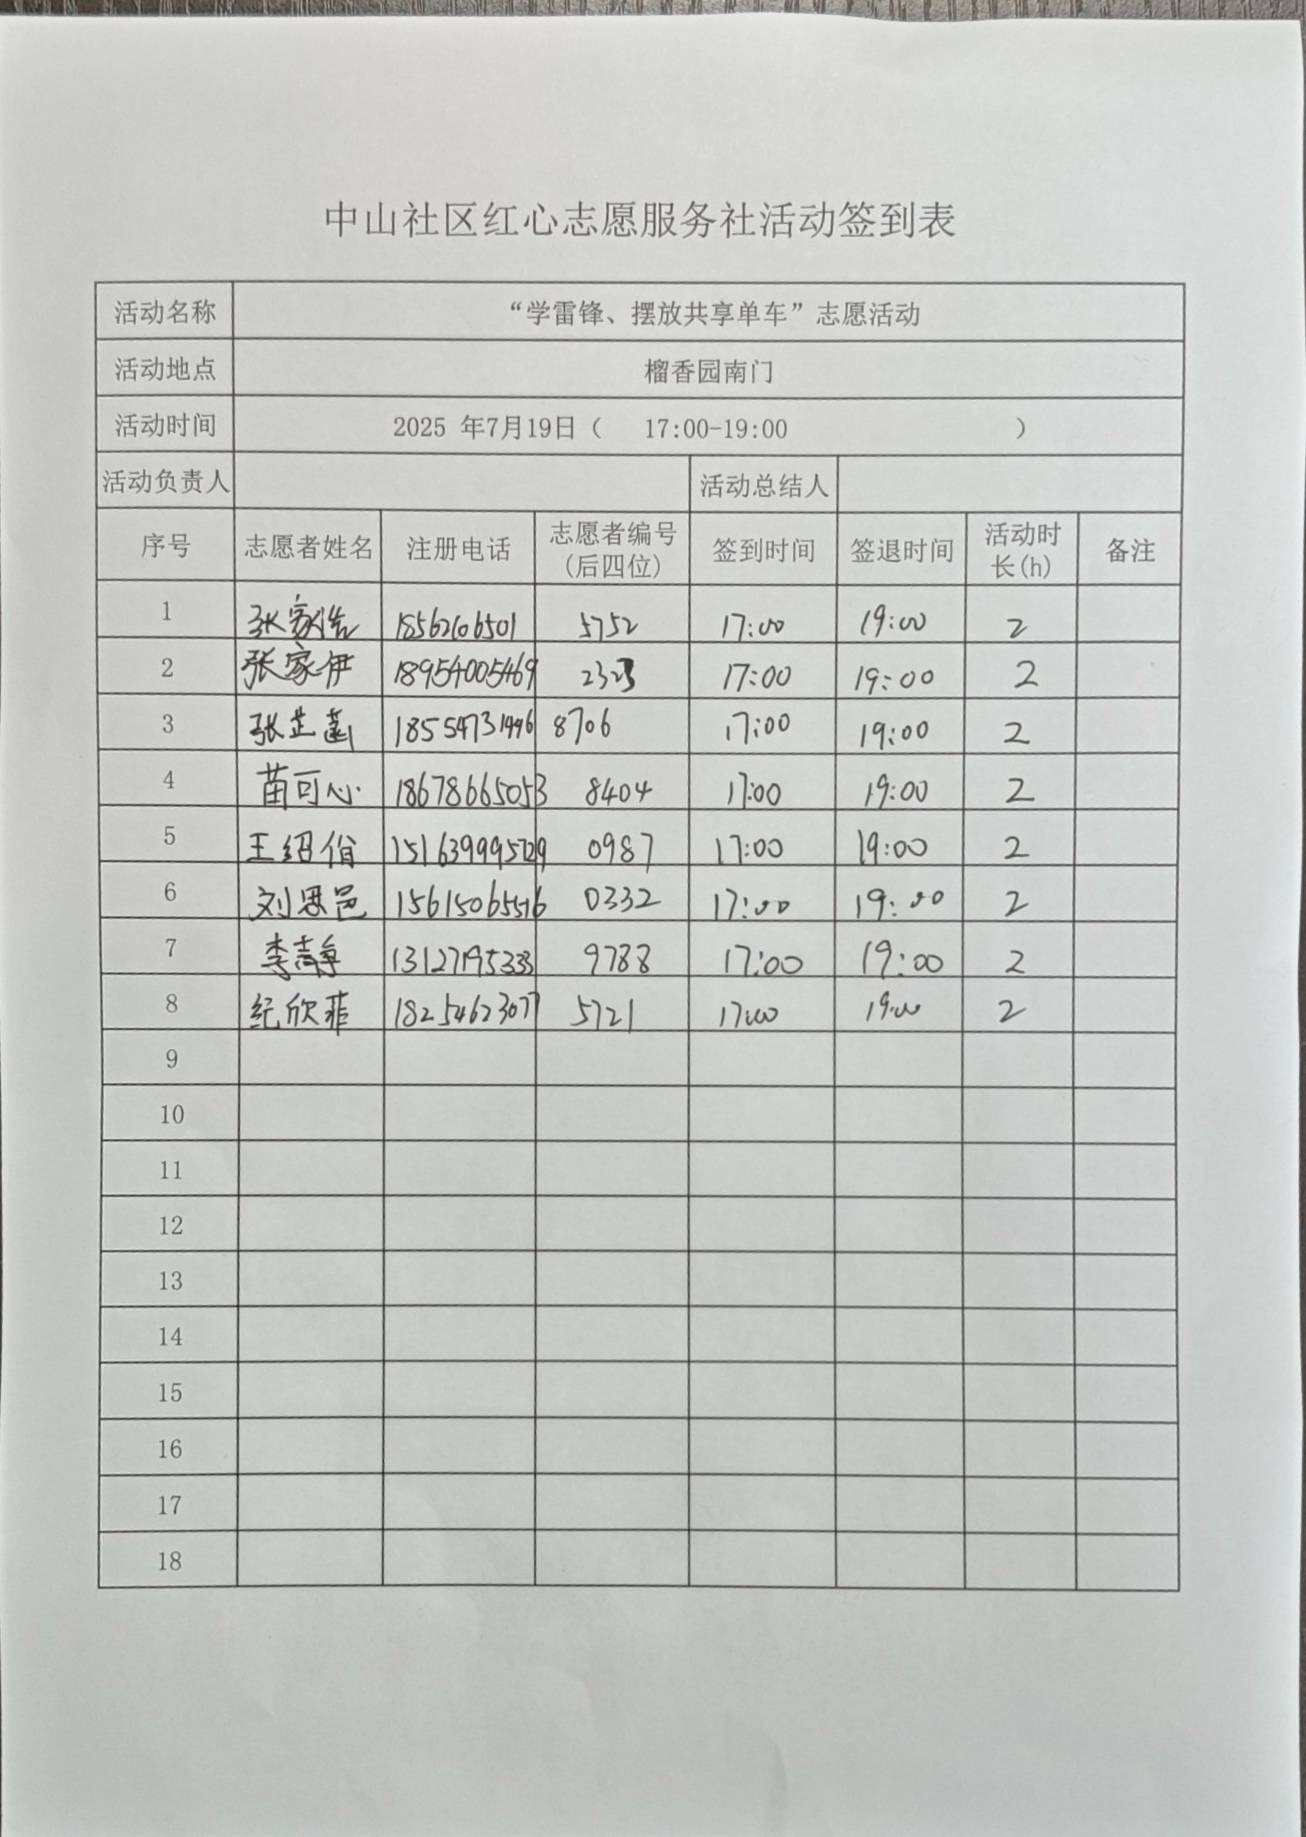 中山社区红心志愿服务社活动签到表
活动名称 “学雷锋、摆放共享单车”志愿活动
活动地点 榴香园南门
活动时间 2025 年7月19日（ 17:00-19:00 ）
活动负责人 活动总结人
序号 志愿者姓名 注册电话 志愿者编号(后四位) 签到时间 签退时间 活动时长(h) 备注
1 张家浩 18562606501 5752 17:00 19:00 2
2 张家伊 18954005469 2323 17:00 19:00 2
3 张芷菡 18554731996 8706 17:00 19:00 2
4 苗可心 18678665053 8404 17:00 19:00 2
5 王绍伯 0987 17:00 19:00 2
6 刘思邑 15615065516 0332 17:00 19:00 2
7 李静 13127195333 9788 17:00 19:00 2
8 纪欣菲 18254623077 5721 17:00 19:00 2
9
10
11
12
13
14
15
16
17
18